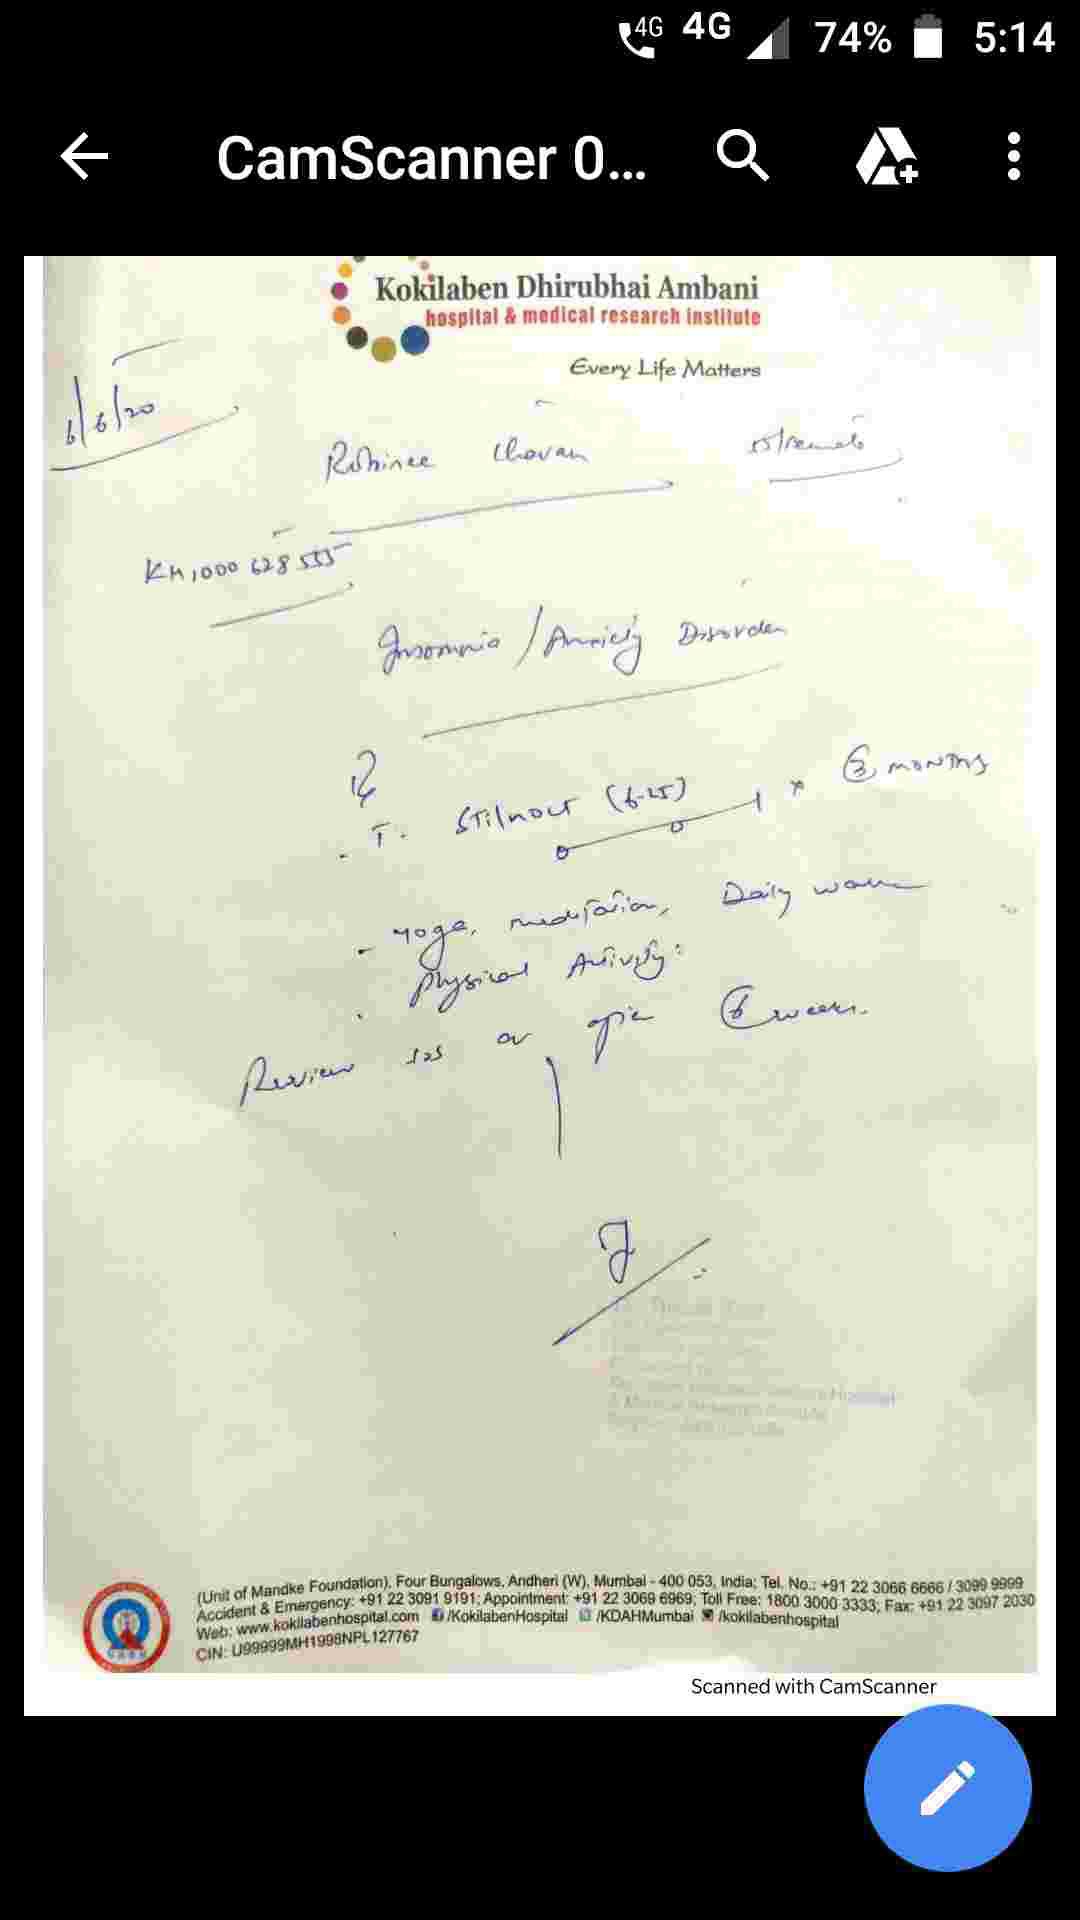 4G 4G 74% 5:14
CamScanner 0...
Kokilaben Dhirubhai Ambani
hospital & medical research institute
Every Life Matters
6/6/20
Chavan
KH1000 628 555
Insomnia / Anxiety Disorder
T. Stilnoct (6.25)
x 3 MONTHS
- Yoga, meditation, Daily
Physical Activity.
Review sos or 6 weeks.
(Unit of Mandke Foundation), Four Bungalows, Andheri (W), Mumbai - 400 053, India; Tel. No.: +91 22 3066 6666 / 3099 9999
Accident & Emergency: +91 22 3091 9191; Appointment: +91 22 3069 6969; Toll Free: 1800 3000 3333; Fax: +91 22 3097 2030
Web: www.kokilabenhospital.com /KokilabenHospital /KDAHMumbai /kokilabenhospital
CIN: U99999MH1998NPL127767
Scanned with CamScanner